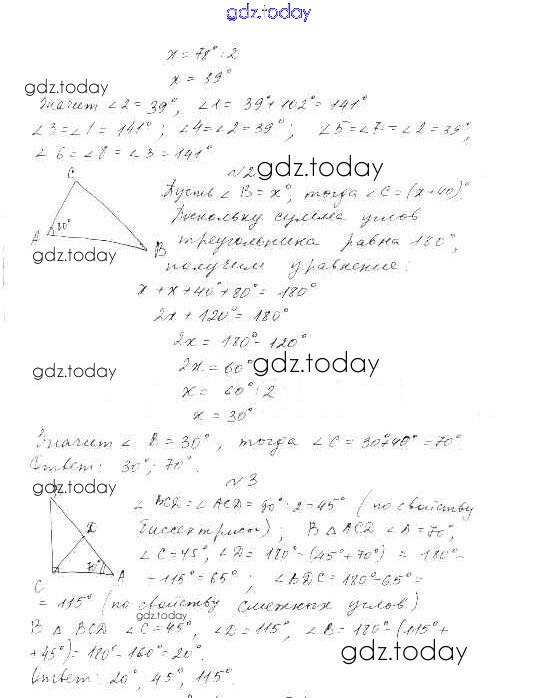 gdz.today
x = 78° : 2
x = 39°
gdz.today
Значит ∠2 = 39°, ∠1 = 39° + 102° = 141°
∠3 = ∠1 = 141°; ∠4 = ∠2 = 39°; ∠5 = ∠7 = ∠2 = 39°,
∠6 = ∠8 = ∠3 = 141°
№2 gdz.today
C
Пусть ∠B = x°, тогда ∠C = (x+40)°
Поскольку сумма углов
A 80° B
треугольника равна 180°,
gdz.today
получим уравнение:
x + x + 40° + 80° = 180°
2x + 120° = 180°
2x = 180° - 120°
gdz.today 2x = 60° gdz.today
x = 60° : 2
x = 30°
Значит ∠B = 30°, тогда ∠C = 30°+40° = 70°.
Ответ: 30°; 70°.
№3
gdz.today
∠BCD = ∠ACD = 90° : 2 = 45° (по свойству
D
биссектрисы); В △ACD ∠A = 70°,
∠C = 45°, ∠D = 180° - (45° + 70°) = 180° -
C 70° A
- 115° = 65°; ∠BDC = 180° - 65° =
= 115° (по свойству смежных углов)
gdz.today
В △ BCD ∠C = 45°, ∠D = 115°, ∠B = 180° - (115° +
+ 45°) = 180° - 160° = 20°.
gdz.today
Ответ: 20°, 45°, 115°.